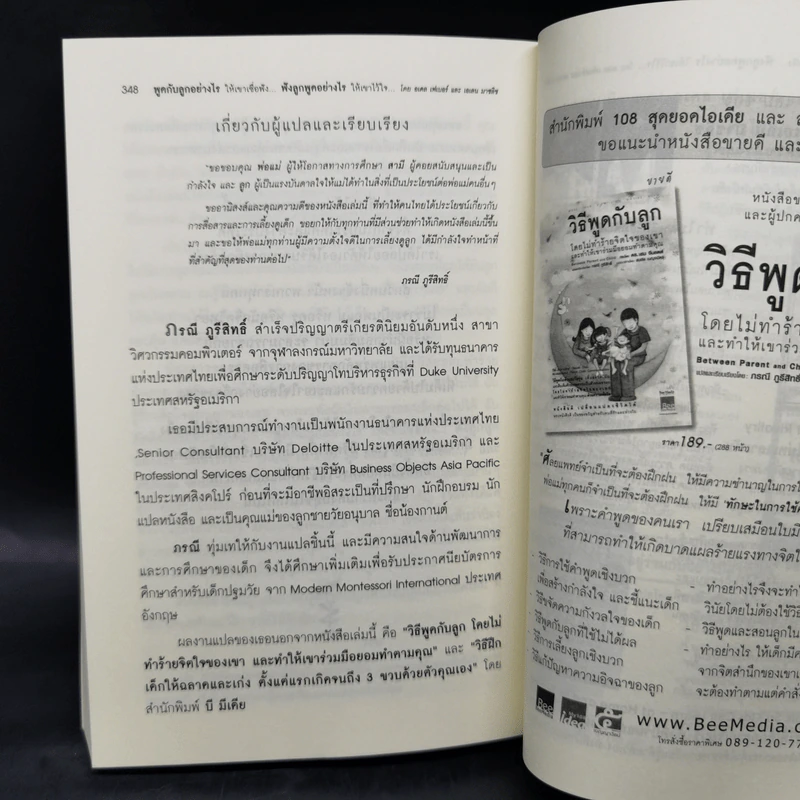 348 พูดกับลูกอย่างไร ให้เขาเชื่อฟัง... ฟังลูกพูดอย่างไร ให้เขาไว้ใจ... โดย อเดล เฟเบอร์ และ เอเลน มาซลิช
เกี่ยวกับผู้แปลและเรียบเรียง
"ขอขอบคุณ พ่อแม่ ผู้ให้โอกาสทางการศึกษา สามี ผู้คอยสนับสนุนและเป็น
กำลังใจ และ ลูก ผู้เป็นแรงบันดาลใจให้แม่ได้ทำในสิ่งที่เป็นประโยชน์ต่อพ่อแม่คนอื่นๆ
ขออานิสงส์และคุณความดีของหนังสือเล่มนี้ ที่ทำให้คนไทยได้ประโยชน์เกี่ยวกับ
การสื่อสารและการเลี้ยงดูเด็ก ขอยกให้กับทุกท่านที่มีส่วนช่วยทำให้เกิดหนังสือเล่มนี้ขึ้น
มา และขอให้พ่อแม่ทุกท่านผู้มีความตั้งใจดีในการเลี้ยงดูลูก ได้มีกำลังใจทำหน้าที่
ที่สำคัญที่สุดของท่านต่อไป"
ภรณี ภูรีสิทธิ์
ภรณี ภูรีสิทธิ์ สำเร็จปริญญาตรีเกียรตินิยมอันดับหนึ่ง สาขา
วิศวกรรมคอมพิวเตอร์ จากจุฬาลงกรณ์มหาวิทยาลัย และได้รับทุนธนาคาร
แห่งประเทศไทยเพื่อศึกษาระดับปริญญาโทบริหารธุรกิจที่ Duke University
ประเทศสหรัฐอเมริกา
เธอมีประสบการณ์ทำงานเป็นพนักงานธนาคารแห่งประเทศไทย
,Senior Consultant บริษัท Deloitte ในประเทศสหรัฐอเมริกา และ
Professional Services Consultant บริษัท Business Objects Asia Pacific
ในประเทศสิงคโปร์ ก่อนที่จะมีอาชีพอิสระเป็นที่ปรึกษา นักฝึกอบรม นัก
แปลหนังสือ และเป็นคุณแม่ของลูกชายวัยอนุบาล ชื่อน้องกานต์
ภรณี ทุ่มเทให้กับงานแปลชิ้นนี้ และมีความสนใจด้านพัฒนาการ
และการศึกษาของเด็ก จึงได้ศึกษาเพิ่มเติมเพื่อรับประกาศนียบัตรการ
ศึกษาสำหรับเด็กปฐมวัย จาก Modern Montessori International ประเทศ
อังกฤษ
ผลงานแปลของเธอนอกจากหนังสือเล่มนี้ คือ "วิธีพูดกับลูก โดยไม่
ทำร้ายจิตใจของเขา และทำให้เขาร่วมมือยอมทำตามคุณ" และ "วิธีฝึก
เด็กให้ฉลาดและเก่ง ตั้งแต่แรกเกิดจนถึง 3 ขวบด้วยตัวคุณเอง" โดย
สำนักพิมพ์ บี มีเดีย
สำนักพิมพ์ 108 สุดยอดไอเดีย และ
ขอแนะนำหนังสือขายดี และ
ขายดี
วิธีพูดกับลูก
โดยไม่ทำร้ายจิตใจของเขา
และทำให้เขาร่วมมือยอมทำตามคุณ
หนังสือ
และผู้ปก
วิธีพูด
โดยไม่ทำร้า
และทำให้เขาร่ว
Between Parent and Ch
แปลและเรียบเรียงโดย : ภรณี ภูรีสิทธิ์
ราคา 189.- (288 หน้า)
"ศัลยแพทย์จำเป็นที่จะต้องฝึกฝน ให้มีความชำนาญในการใ
พ่อแม่ทุกคนก็จำเป็นที่จะต้องฝึกฝน ให้มี "ทักษะในการใช้
เพราะคำพูดของคนเรา เปรียบเสมือนใบมี
ที่สามารถทำให้เกิดบาดแผลร้ายแรงทางจิตใ
- วิธีการใช้คำพูดเชิงบวก
เพื่อสร้างกำลังใจ และชี้แนะเด็ก
- วิธีขจัดความกังวลใจของเด็ก
- วิธีพูดกับลูกที่ใช้ไม่ได้ผล
- วิธีการเลี้ยงลูกเชิงบวก
- วิธีแก้ปัญหาความอิจฉาของลูก
- ทำอย่างไรจึงจะทำ
วินัยโดยไม่ต้องใช้วิธี
- วิธีพูดและสอนลูกใน
- ทำอย่างไร ให้เด็กมีค
จากจิตสำนึกของเขาเ
จะต้องทำตามแต่คำสั่
Bee
Idea
www.BeeMedia.c
โทรสั่งซื้อราคาพิเศษ 089-120-77